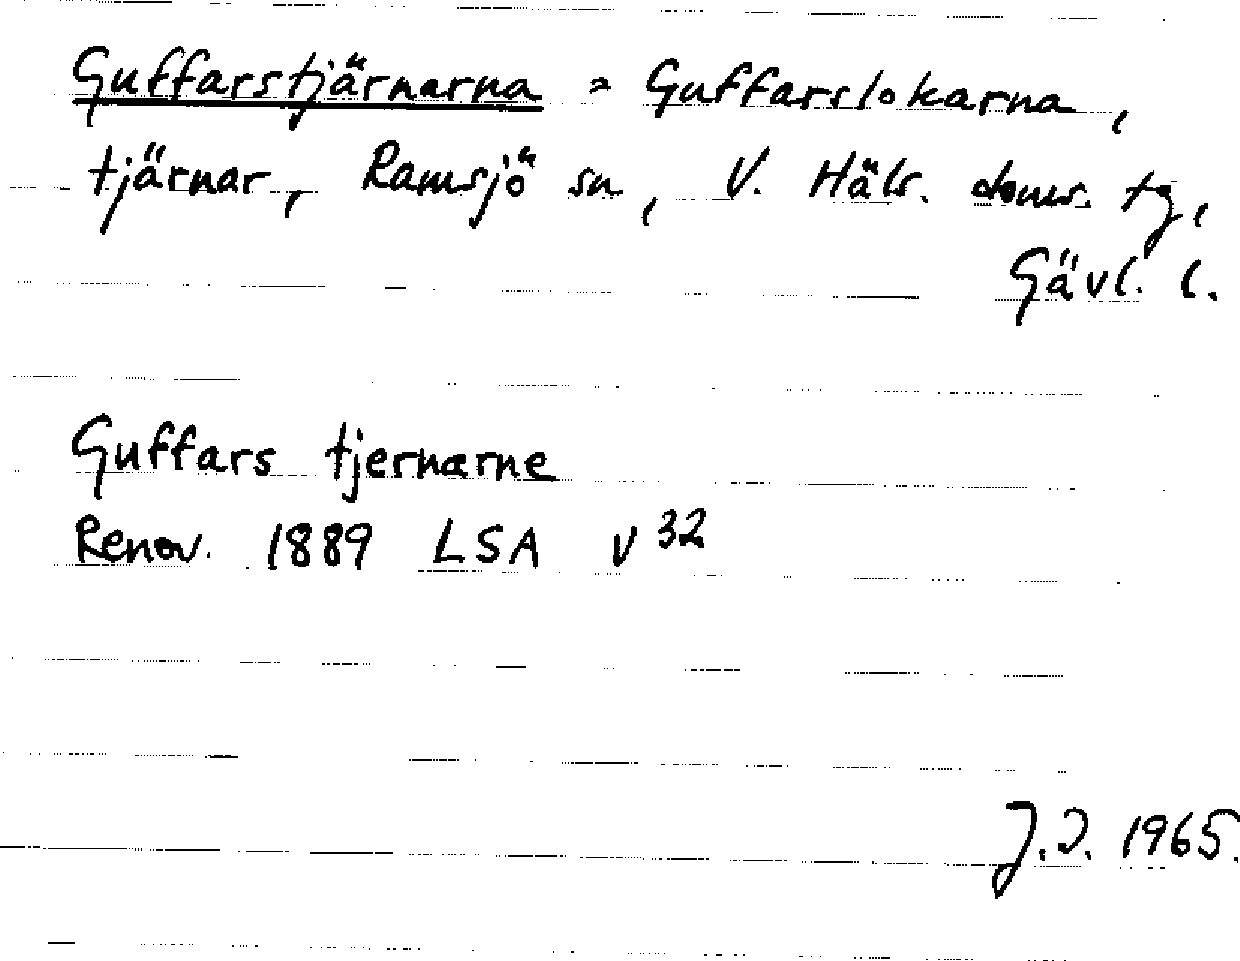 Guffarstjärnarna = Guffarslokarna,
tjärnar, Ramsjö sn, V. Häls. doms. tg,
Gävl. l.
Guffars tjernarne
Renov. 1889 LSA v 32
J.D. 1965.